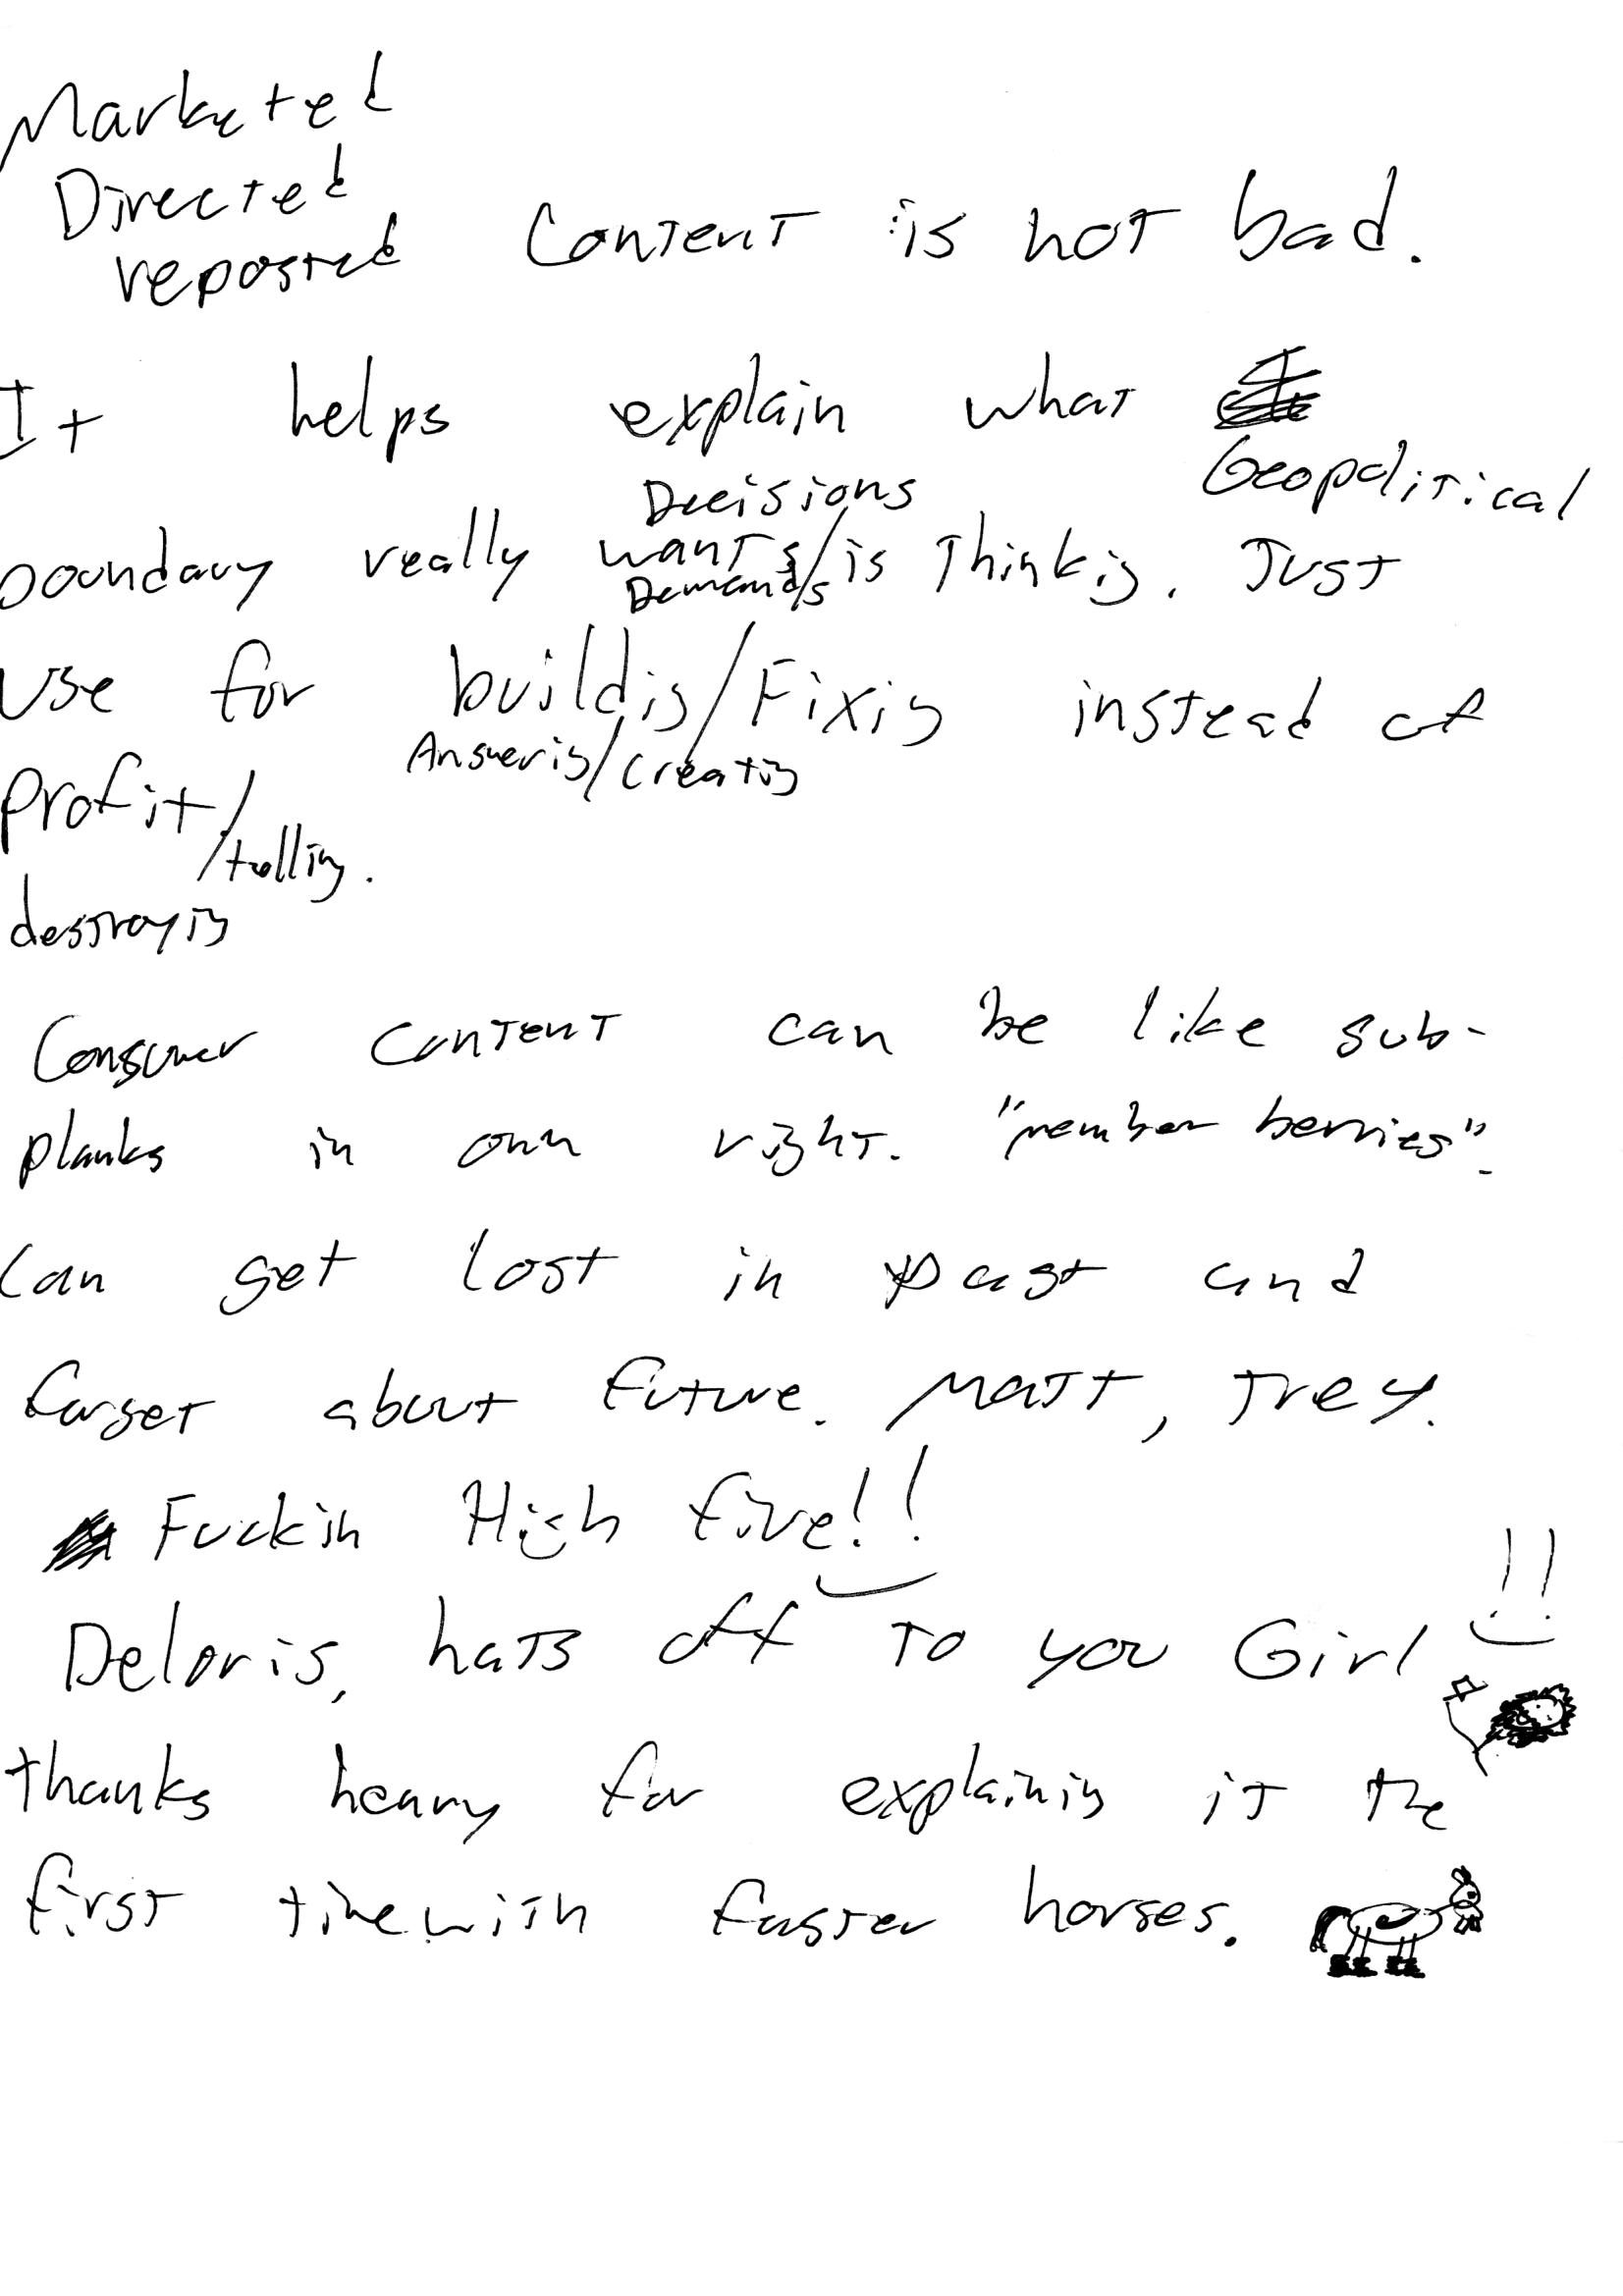 Marketed
Directed
reposted Content is not bad.
It helps explain what
Geopolitical
Decisions
boundary really wants/is Thinking. Just
Demands
use for building/Fixing instead of
Answering/Creating
Profit/trolling.
destroying
Consumer content can be like sub-
planks in own right. "member berries".
Can get lost in past and
forget about future. Matt, Trey.
Fuckin High five!!
Deloris, hats off to you Girl !!
thanks heavy for explaining it the
first time with faster horses.